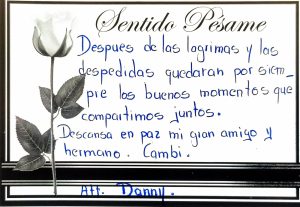 Sentido Pésame
Despues de las lagrimas y las
despedidas quedaran por siem_
pre los buenos momentos que
compartimos juntos.
Descansa en paz mi gran amigo y
hermano. Cambi.
Att. Danny.